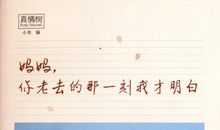 真情树
小米 编
妈妈，
你老去的那一刻我才明白